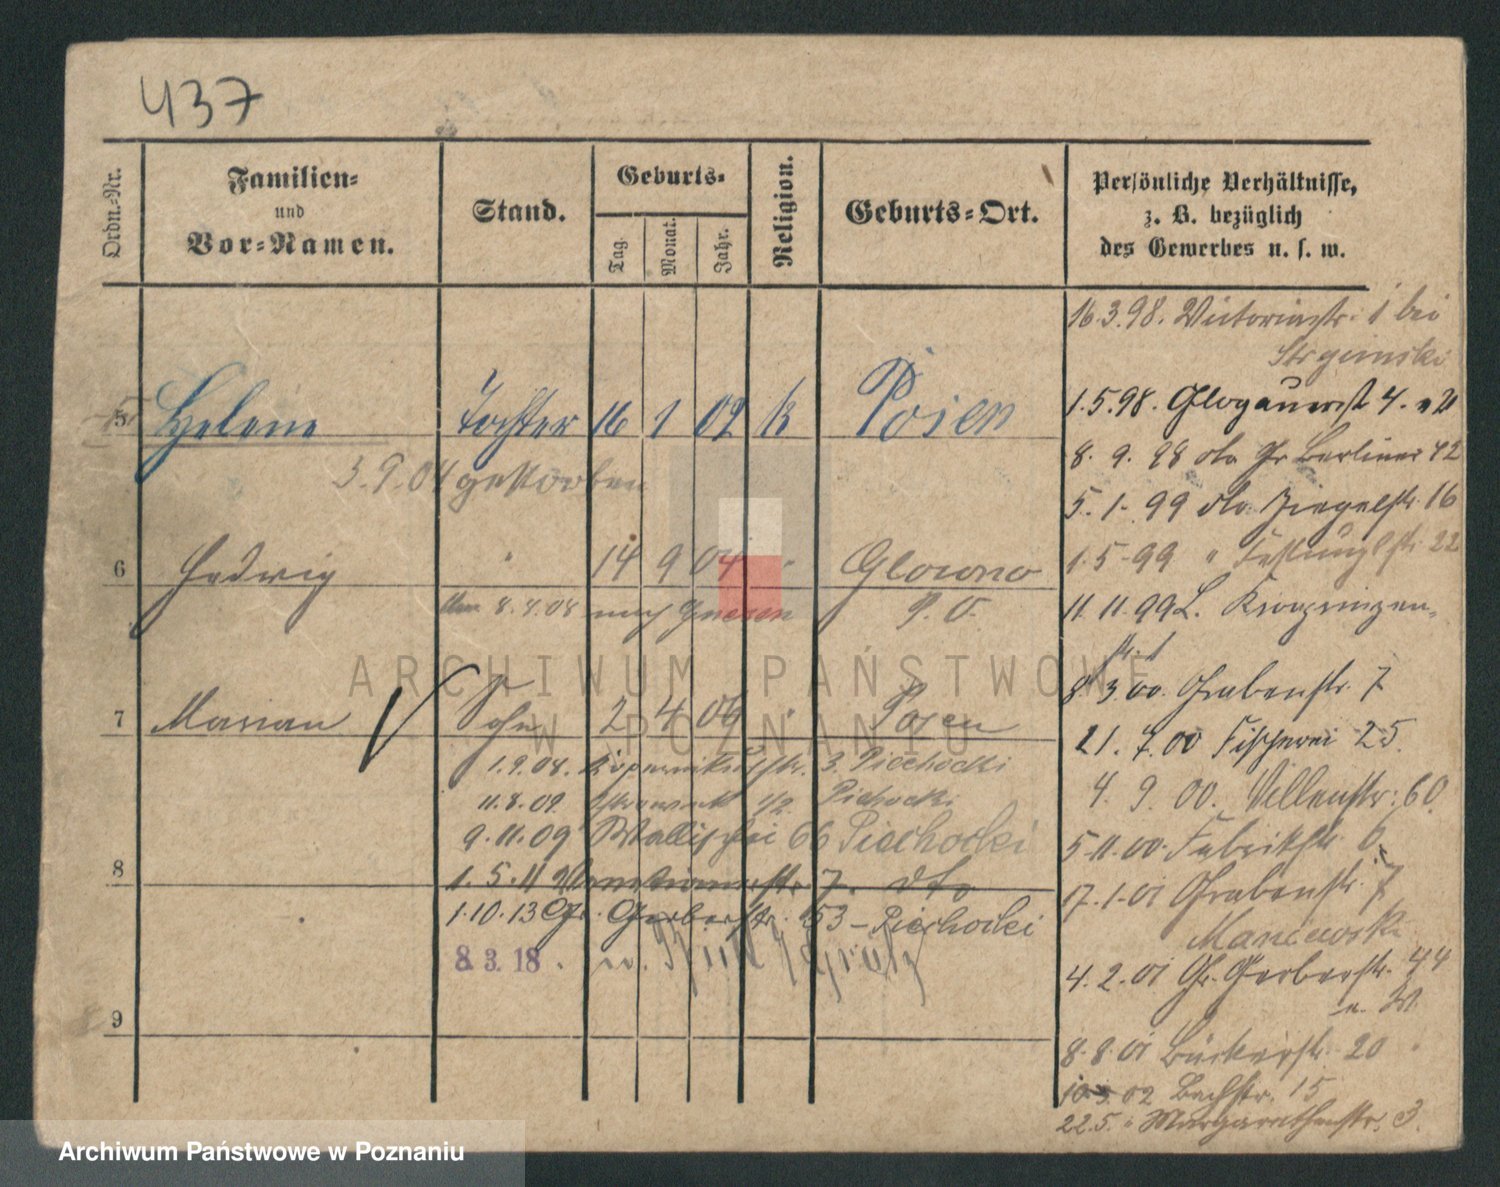 437
Ordn.-Nr.
Familien-
und
Vor-Namen.
Stand.
Geburts-
Tag.
Monat.
Jahr.
Religion.
Geburts-Ort.
Persönliche Verhältnisse,
z. B. bezüglich
des Gewerbes u. s. w.
5 Helene Tochter 16 1 02 k Posen
3.9.04 gestorben
6 Hedwig " 14 9 04 " Glowno
8.4.08 nach Gnesen P. O.
7 Marian Sohn 2 4 06 " Posen
1.9.08. Kopernikusstr. 3. Piechocki
11.8.09. 1/2 Piechocki
9.11.09 Wallischei 66 Piechocki
8
1.5.11 7. dto
1.10.13 Gr. Gerberstr. 53 - Piechocki
8.3.18.
9
16.3.98. Victoriastr. 1 bei
1.5.98. Glogauerstr 4.
8.9.98 do Gr Berliner 42
5.1.99 do Ziegelstr. 16
1.5-99 " 22
11.11.99 L. Kronprinzen-
str. 1
8.3.00. Grabenstr. 7
21.7.00 Fischerei 25.
4.9.00. Villenstr. 60
5.11.00. Fabrikstr. 6
17.1.01 Grabenstr. 7
4.2.01 Gr. Gerberstr. 44
8.8.01 Bäckerstr. 20
02 Bachstr. 15
22.5. " Margarethenstr. 3.
ARCHIWUM PAŃSTWOWE
W POZNANIU
Archiwum Państwowe w Poznaniu